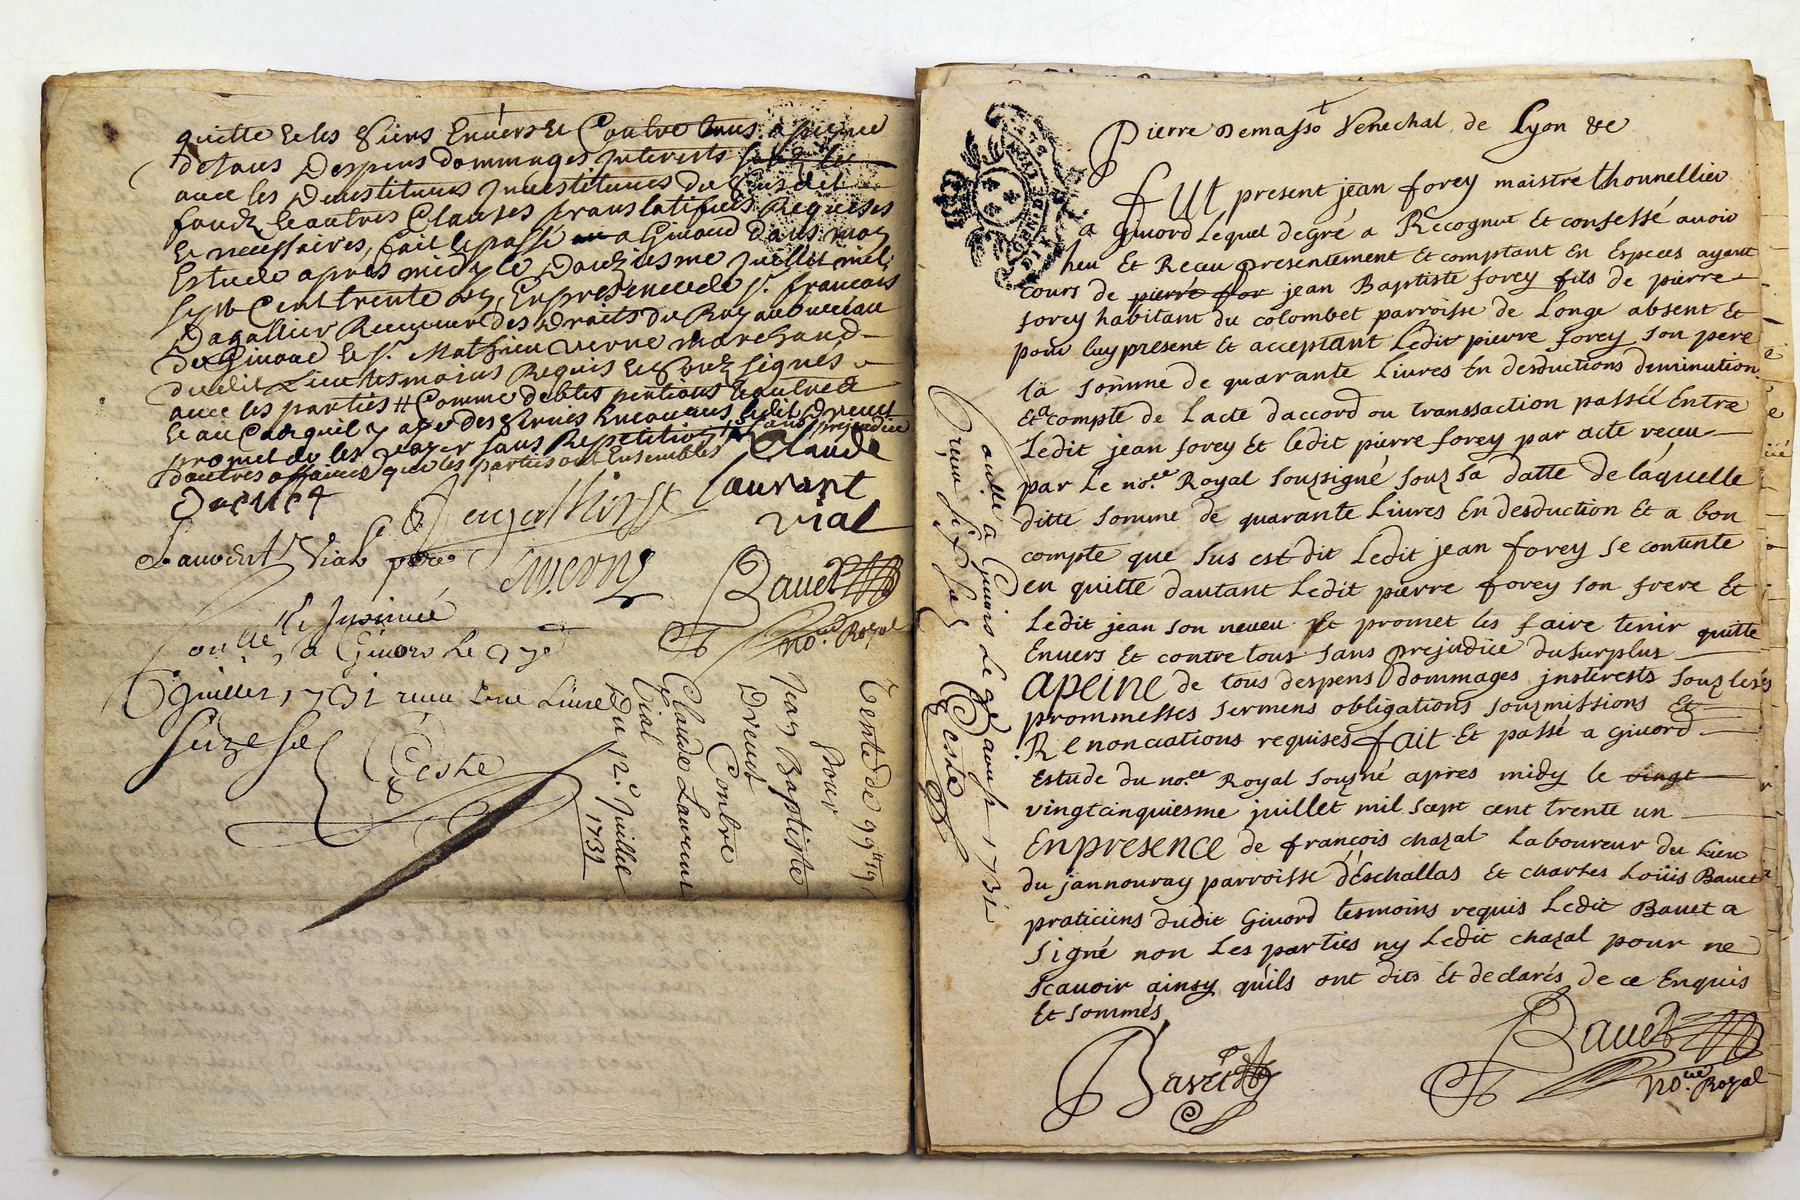 quitte & les siens Envers Et Contre tous a peine
de tous Despens dommages Interests
avec les Devestitures Investitures dudit
fondz & autres Clauses translatifves Requises
Et necessaires, fait & passé a Givord Dans mon
Estude apres midy le Douziesme Juillet mil
sept Cent trente un, En presence de sr. francois
Dagallier Receveur des Droits du Roy au bureau
de Givord & sr. Mathieu verne marchand
dudit Lieu tesmoins Requis & souz signés
avec les parties # Comme debtes pentions & autres
promet de les payer sans Repetition sans prejudice
dautres affaires que les parties ont Ensembles
Drevet
Claude
Laurant
vial
Lauvent Vial pere
Bavet
nore. Royal
& Insinué
a Givors le
Juillet 1731 receu une Livre
seize s
Ceste
Vente de 99tt 19s
Pour
Jean Baptiste
Drevet
Contre
Claude Lavrent
Vial
Du 12e. Juillet
1731
Pierre Demasso Senechal de Lyon &c
Fut present jean forey maistre thonnellier
a Givord Lequel degré a Recognut Et confessé avoir
heu Et Receu presentement Et comptant En Especes ayant
cours de pierre for jean Baptiste forey fils de pierre
forey habitant du colombet parroisse de Longe absent Et
pour luy present Et acceptant Ledit pierre forey son pere
la somme de quarante Livres En desductions deminution
Et a compte de Lacte daccord ou transsaction passée Entre
Ledit jean forey Et ledit pierre forey par acte receu
par Le nore. Royal souzsigné souz sa datte de laquelle
ditte somme de quarante Livres En desduction Et a bon
compte que sus est dit Ledit jean forey se contente
en quitte dautant Ledit pierre forey son frere Et
Ledit jean son neveu Et promet les faire tenir quitte
Envers Et contre tous sans prejudice du surplus
Apeine de tous despens dommages jnsterests souz les
prommesses sermens obligations souzmissions Et
Renonciations requises fait Et passé a Givord
Estude du nore. Royal souzné apres midy le vingt
vingtcinquiesme juillet mil sept cent trente un
En presence de françois chazal Laboureur du Lieu
du jannouray parroisse d'Eschallas Et charles Loüis Bavet
praticiens dudit Givord tesmoins requis Ledit Bavet a
signé non Les parties ny Ledit chazal pour ne
scavoir ainsy quils ont dits Et declarés de ce Enquis
Et sommés
Bavet
Bavet
nore. Royal
a Givors Le aoust 1731
Receu six s
Ceste